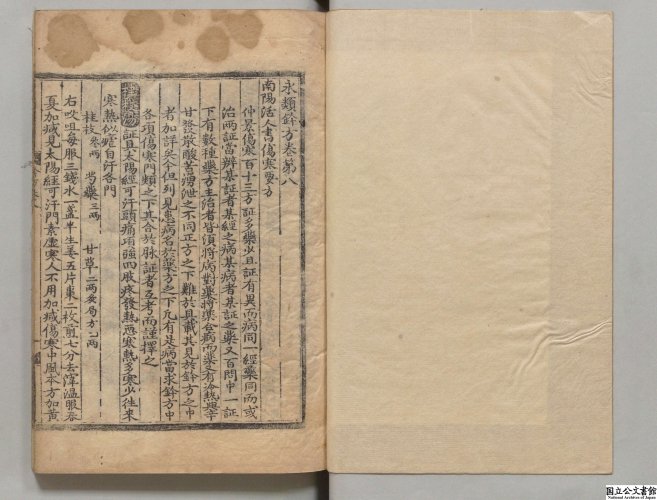 永類鈐方卷第八
南陽活人書傷寒要方
仲景傷寒百十三方証多藥少且証有異而病同一經藥同而或
治兩証當辨某証者某經之病某病者某証之藥又百問中一証
下有數種藥方主治者皆須將病對藥將藥合病而藥又有冷熱與辛
甘發散酸苦湧泄之不同正方之下難於具載其見於鈐方之中
者加詳矣今但列見患病名於藥方之下凡有是病當求鈐方中
各項傷寒門類之下其合於脉証者互考而謹擇之
桂枝湯 証具太陽經可汗頭痛項強四肢疼發熱惡寒熱多寒少往來
寒熱似瘧自汗各門
桂枝 三兩 芍藥 三兩 甘草 二兩 局方一兩
右㕮咀每服三錢水一盞半生姜五片棗二枚煎七分去滓温服春
夏加减見太陽經可汗門素虚寒人不用加减傷寒中風本方加黄
国立公文書館
National Archives of Japan